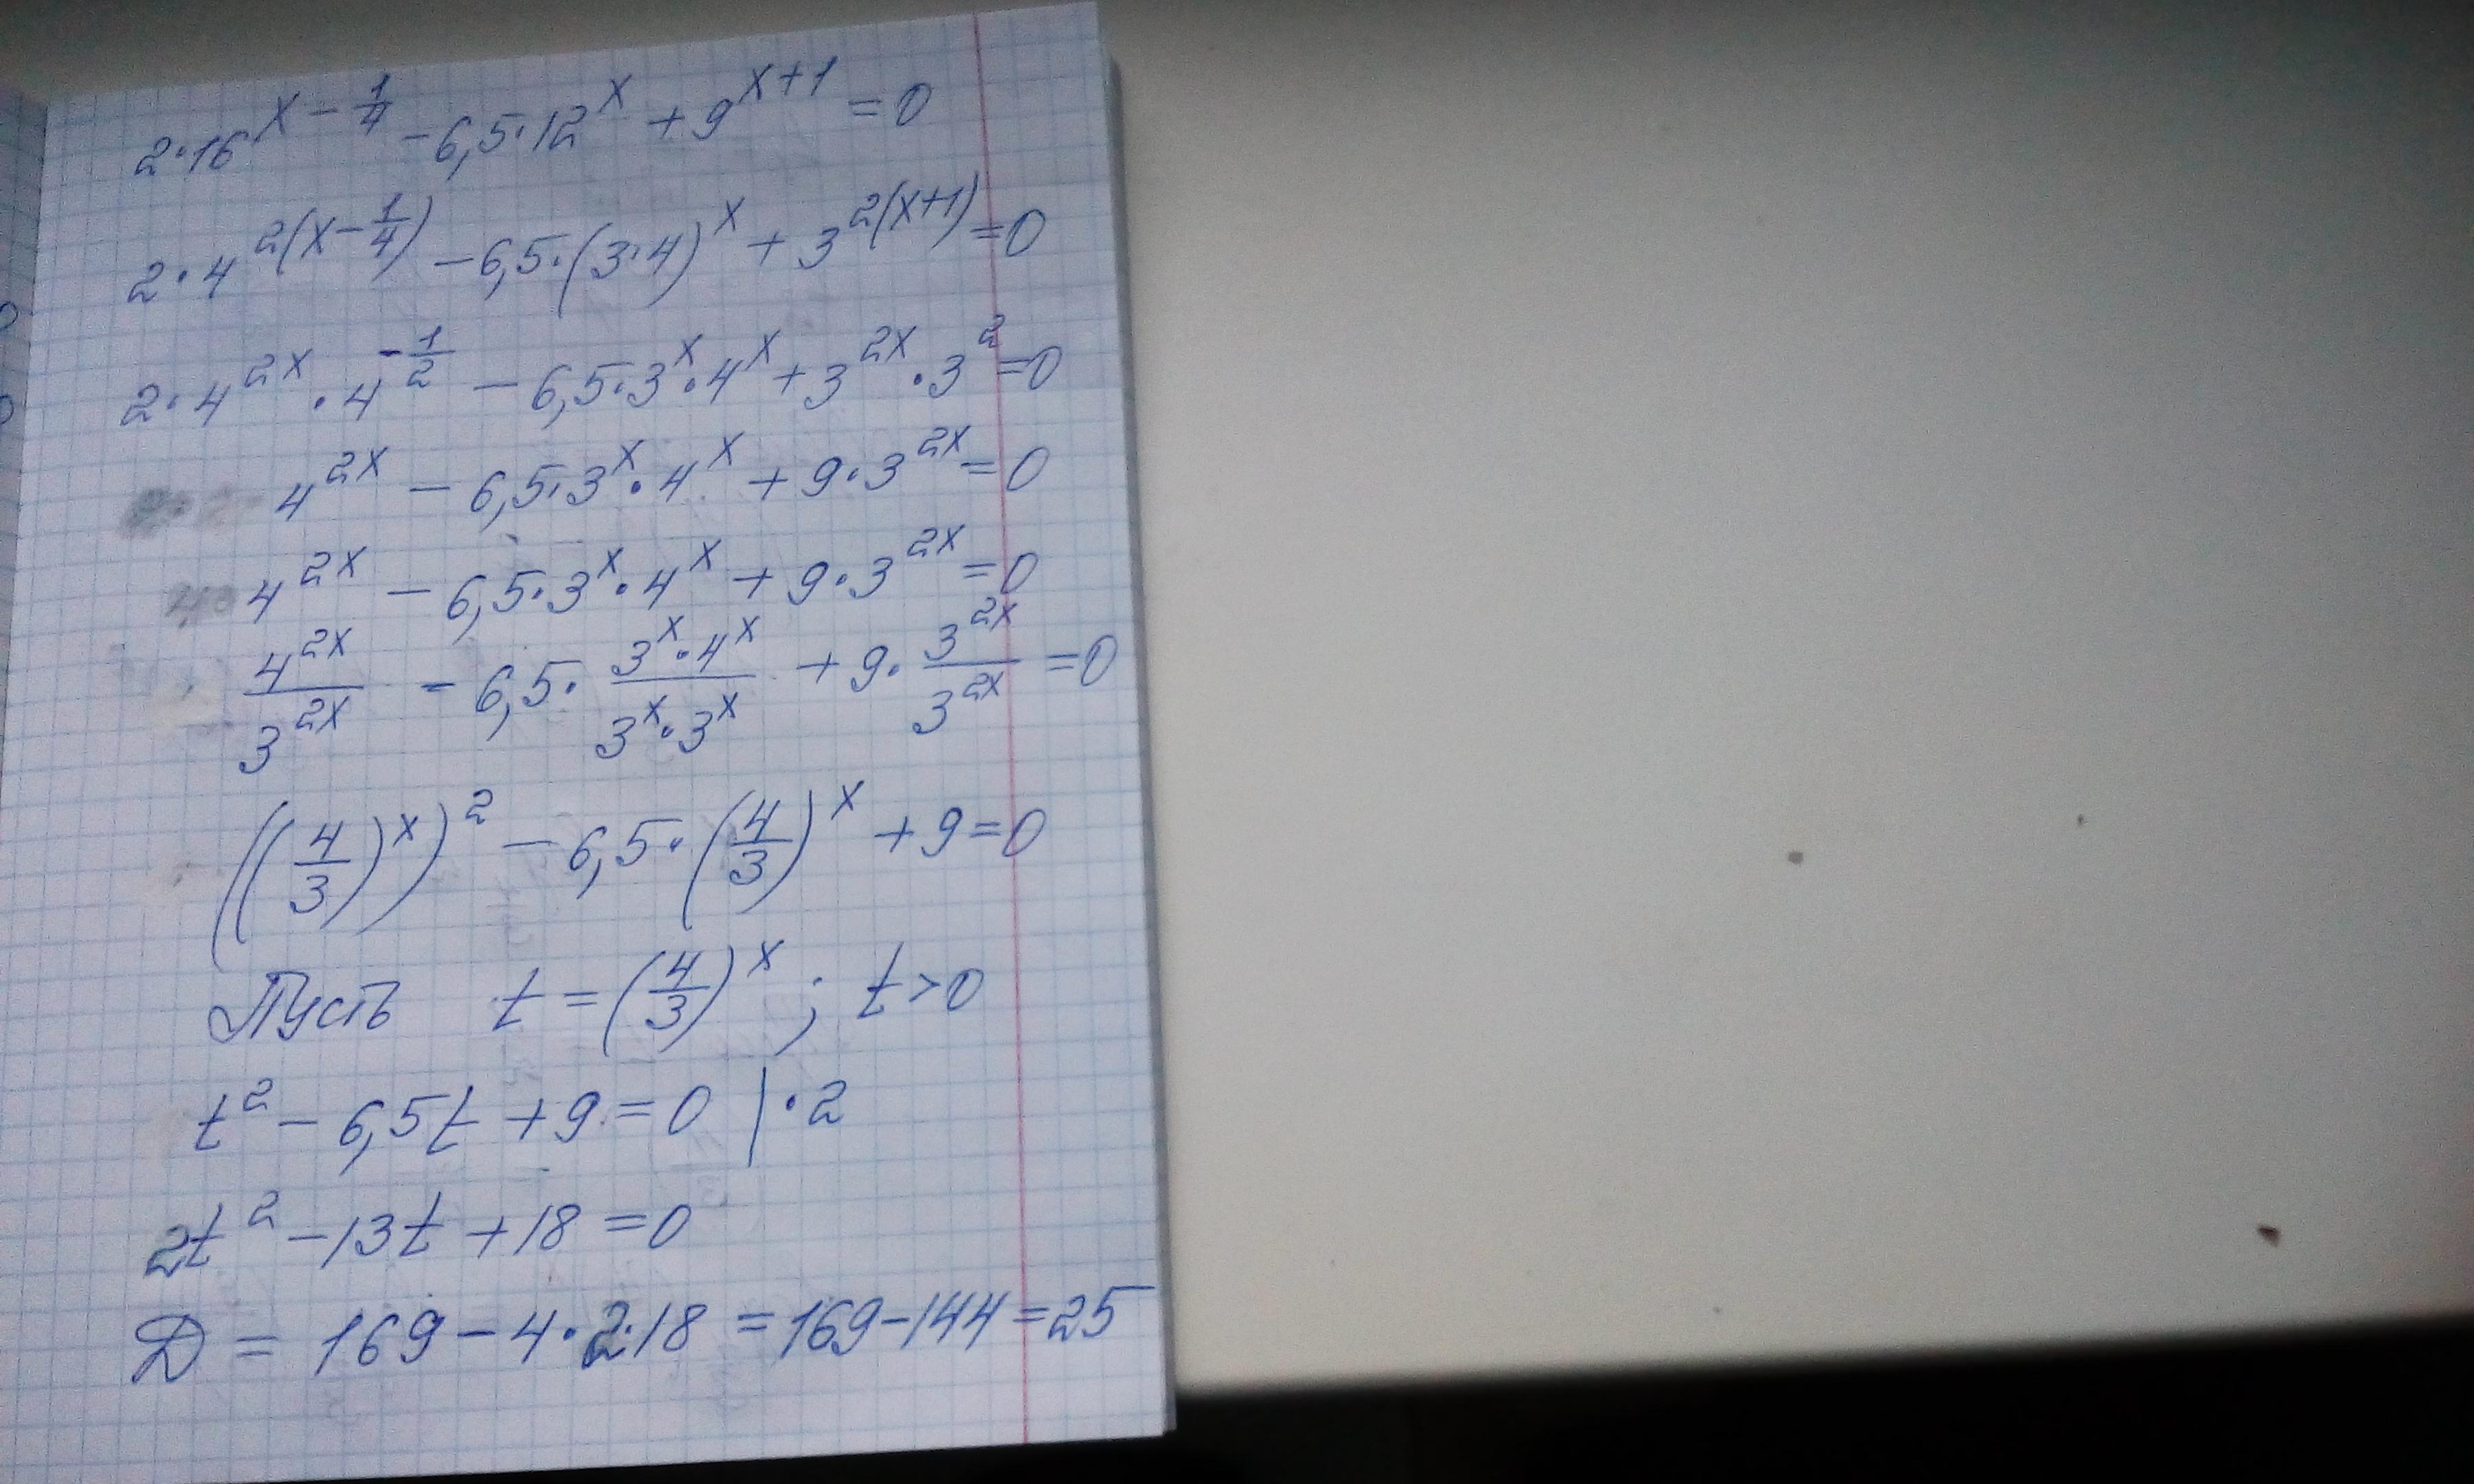 2·16^(x-1/4) - 6,5·12^x + 9^(x+1) = 0
2·4^(2(x-1/4)) - 6,5·(3·4)^x + 3^(2(x+1)) = 0
2·4^(2x)·4^(-1/2) - 6,5·3^x·4^x + 3^(2x)·3^2 = 0
4^(2x) - 6,5·3^x·4^x + 9·3^(2x) = 0
4^(2x) - 6,5·3^x·4^x + 9·3^(2x) = 0
4^(2x)/3^(2x) - 6,5·(3^x·4^x)/(3^x·3^x) + 9·3^(2x)/3^(2x) = 0
((4/3)^x)^2 - 6,5·(4/3)^x + 9 = 0
Пусть t = (4/3)^x ; t > 0
t^2 - 6,5t + 9 = 0 |·2
2t^2 - 13t + 18 = 0
Д = 169 - 4·2·18 = 169 - 144 = 25